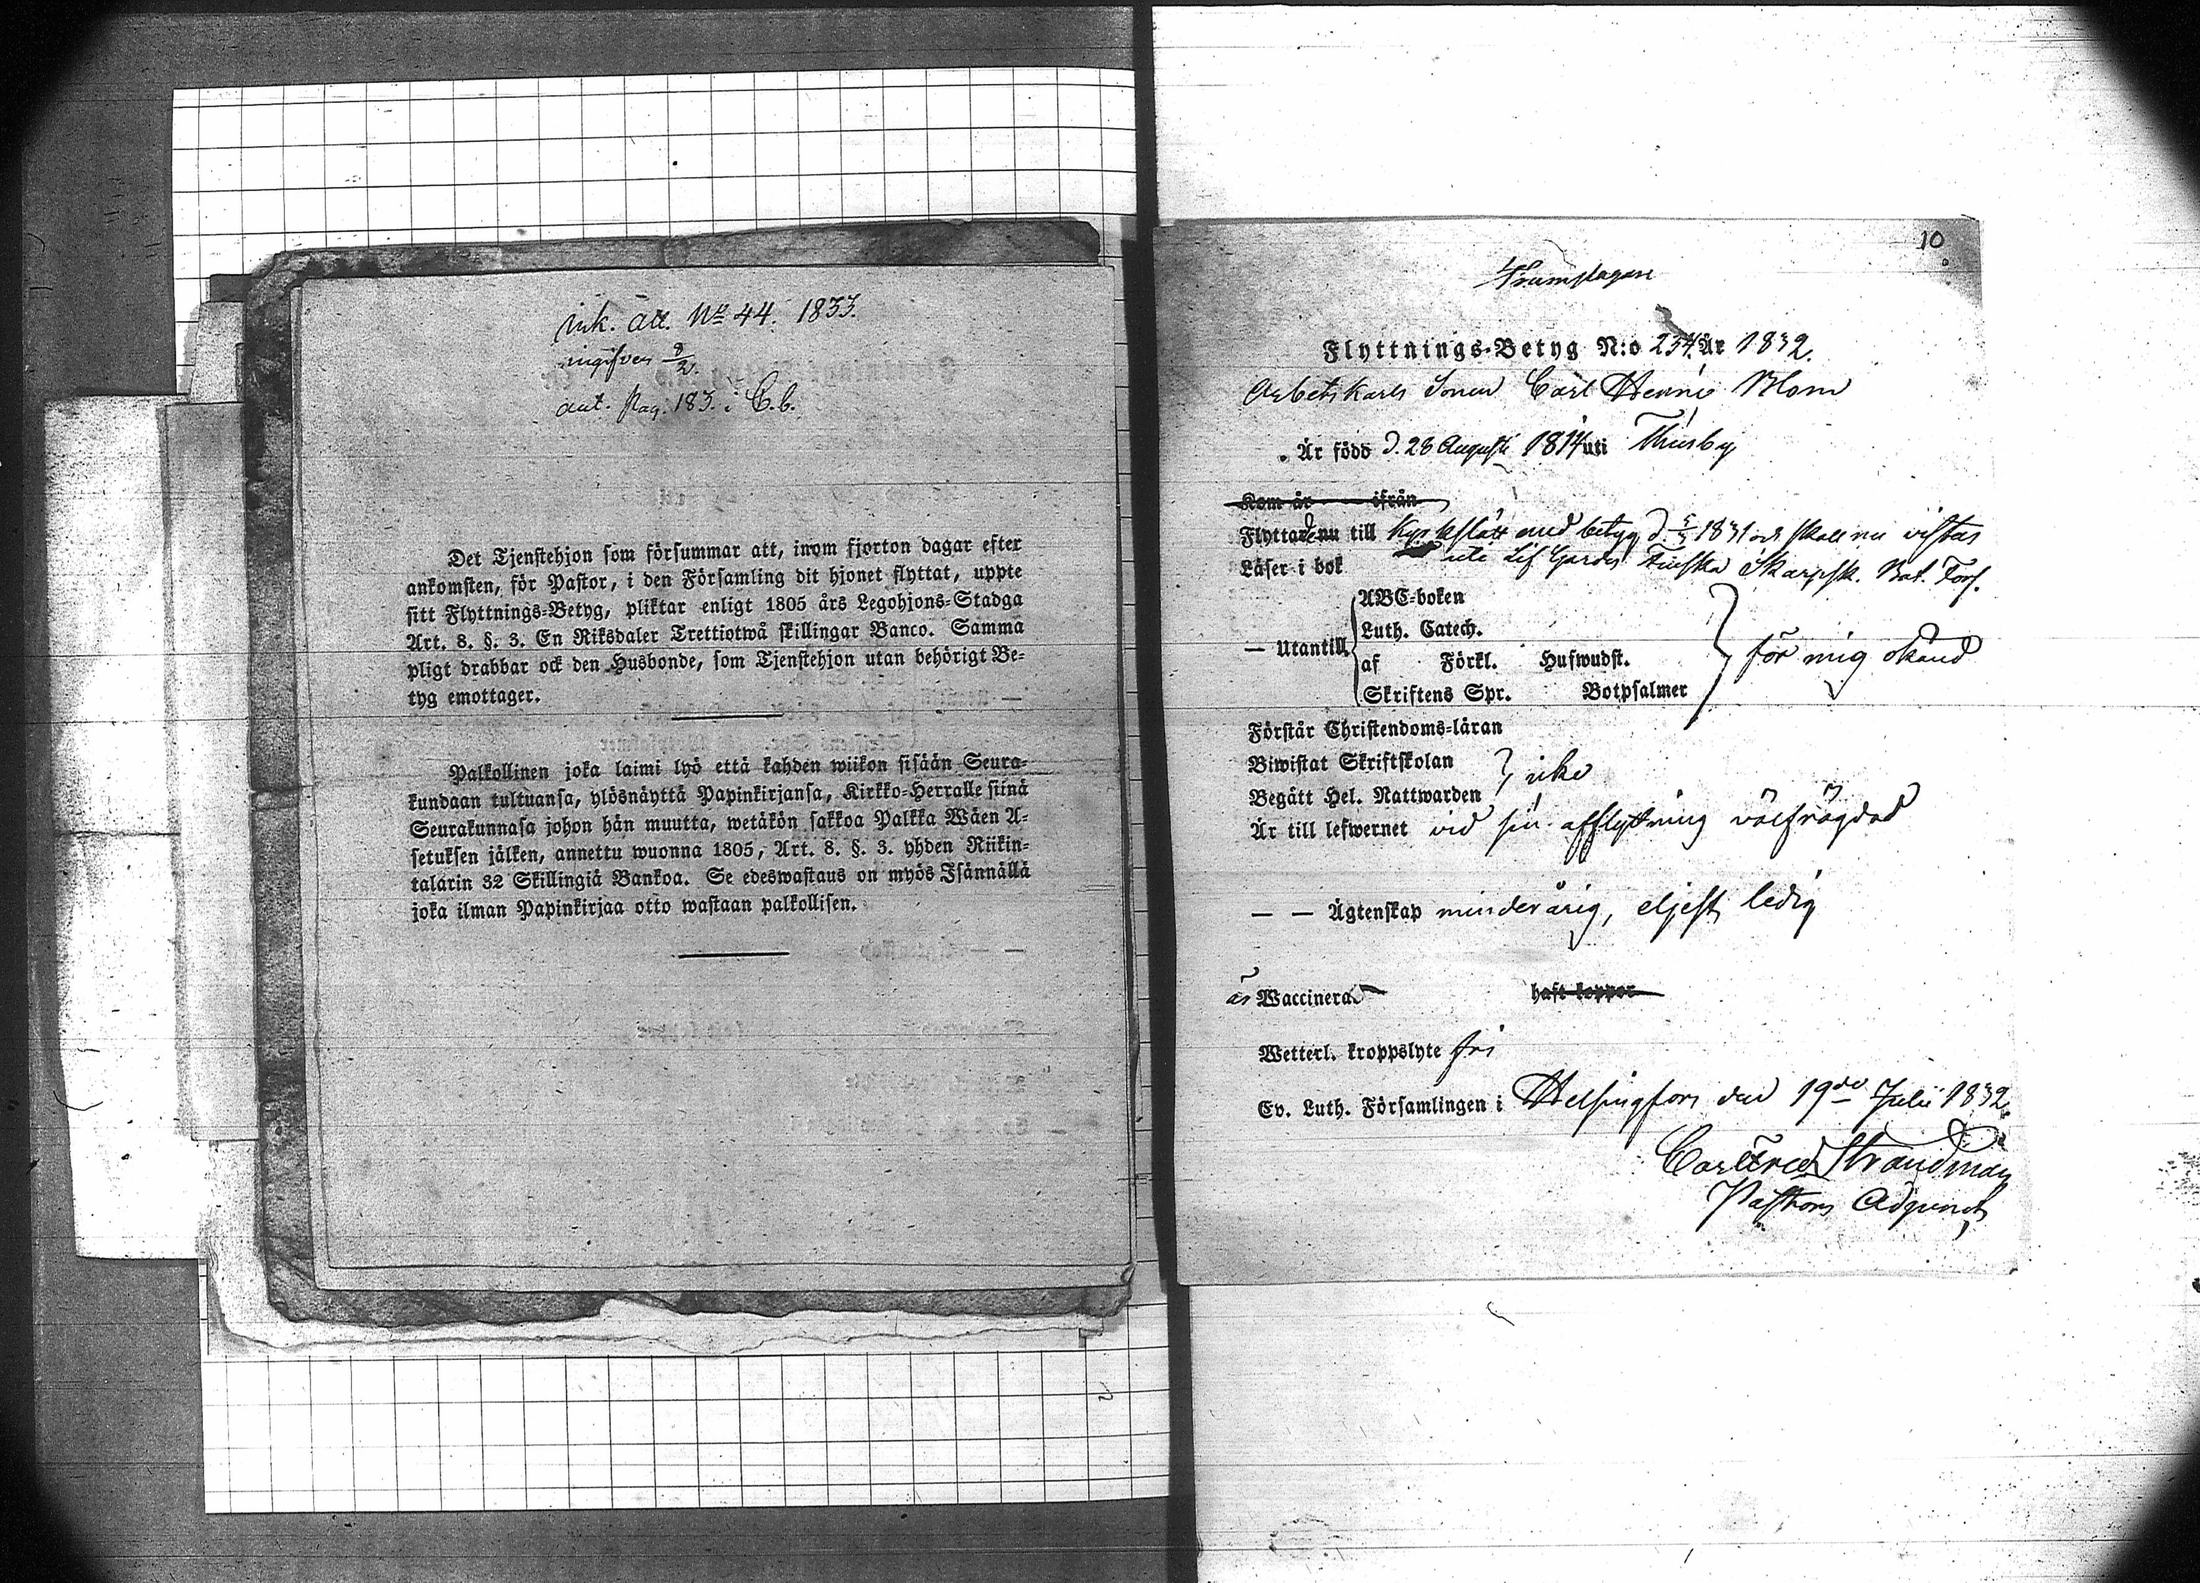 ink. att. No 44. 1833.
ingifven 8/2.
ant. pag. 183. i C.b.
Det Tjenstehjon som försummar att, inom fjorton dagar efter
ankomsten, för Pastor, i den Församling dit hjonet flyttat, uppte
sitt Flyttnings-Betyg, pliktar enligt 1805 års Legohjons-Stadga
Art. 8. §. 3. En Riksdaler Trettiotwå skillingar Banco. Samma
pligt drabbar ock den Husbonde, som Tjenstehjon utan behörigt Be-
tyg emottager.
Palkollinen joka laimi lyö että kahden wiikon sisään Seura-
kundaan tultuansa, ylösnäyttä Papinkirjansa, Kirkko-Herralle siinä
Seurakunnasa johon hän muutta, wetäkön sakkoa Palkka Wäen A-
setuksen jälken, annettu wuonna 1805, Art. 8. §. 3. yhden Riikin-
talarin 32 Skillingiä Bankoa. Se edeswastaus on myös Isännällä
joka ilman Papinkirjaa otto wastaan palkollisen.
10
Trumslagare
Flyttnings-Betyg N:o 254. År 1832.
Arbetskarls Sonen Carl Henric Blom
Är född d. 28 Augusti 1814 uti Thusby
Kom år ifrån
Flyttade nu till Kyrkslätt med betyg d. 5/5 1831 och skall nu vistas
Läser i bok
uti Lif Gardes Finska Skarpsk. Bat. Förs.
— Utantill
ABC-boken
Luth. Catech.
af Förkl. Hufwudst.
Skriftens Spr. Botpsalmer
för mig okänd
Förstår Christendoms-läran
Biwistat Skriftskolan
icke
Begått Hel. Nattwarden
Är till lefwernet vid sin afflyttning välfrägdad
— — Ägtenskap minderårig, eljest ledig
är Waccinerad haft koppor
Wetterl. kroppslyte fri
Ev. Luth. Församlingen i Helsingfors den 19de Julii 1832.
Carl Fred Strandman
Pastors Adjunct